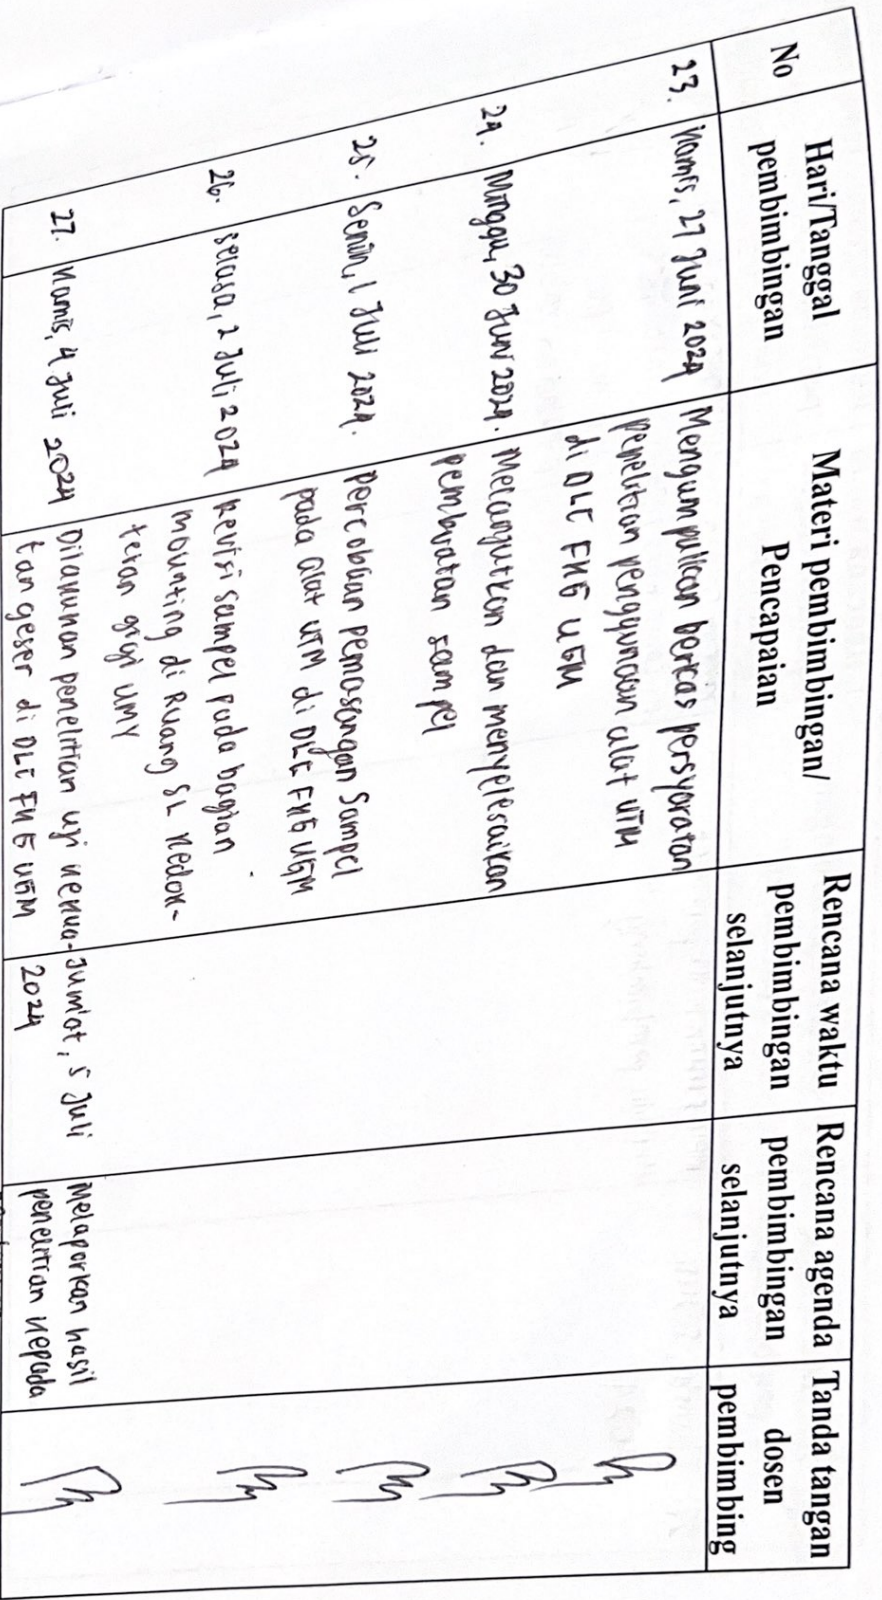 No
Hari/Tanggal
pembimbingan
Materi pembimbingan/
Pencapaian
Rencana waktu
pembimbingan
selanjutnya
Rencana agenda
pembimbingan
selanjutnya
Tanda tangan
dosen
pembimbing
23. Kamis, 27 Juni 2024
Mengumpulkan berkas persyaratan
penelitian penggunaan alat UTM
di DLC FKG UGM
24. Minggu, 30 Juni 2024.
Melanjutkan dan menyelesaikan
pembuatan sampel
25. Senin, 1 Juli 2024.
Percobaan pemasangan Sampel
pada alat UTM di DLC FKG UGM
26. Selasa, 2 Juli 2024
Revisi sampel pada bagian
mounting di Ruang SL Kedok-
teran gigi UMY
27. Kamis, 4 Juli 2024
Dilakukan penelitian uji kekua-
tan geser di DLC FKG UGM
Jum'at, 5 Juli
2024
Melaporkan hasil
penelitian kepada